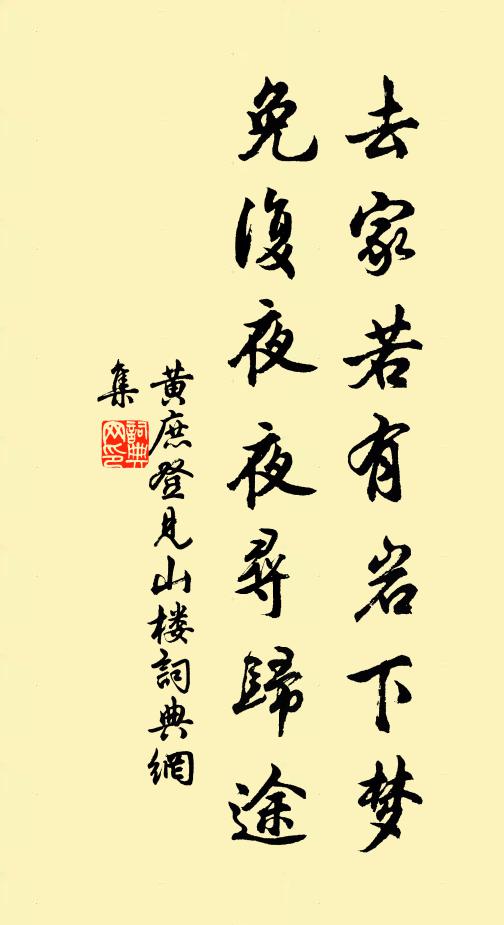 去家若有岩下梦
免復夜夜尋歸途
黄庶登見山楼詞典網
集
詞典网印